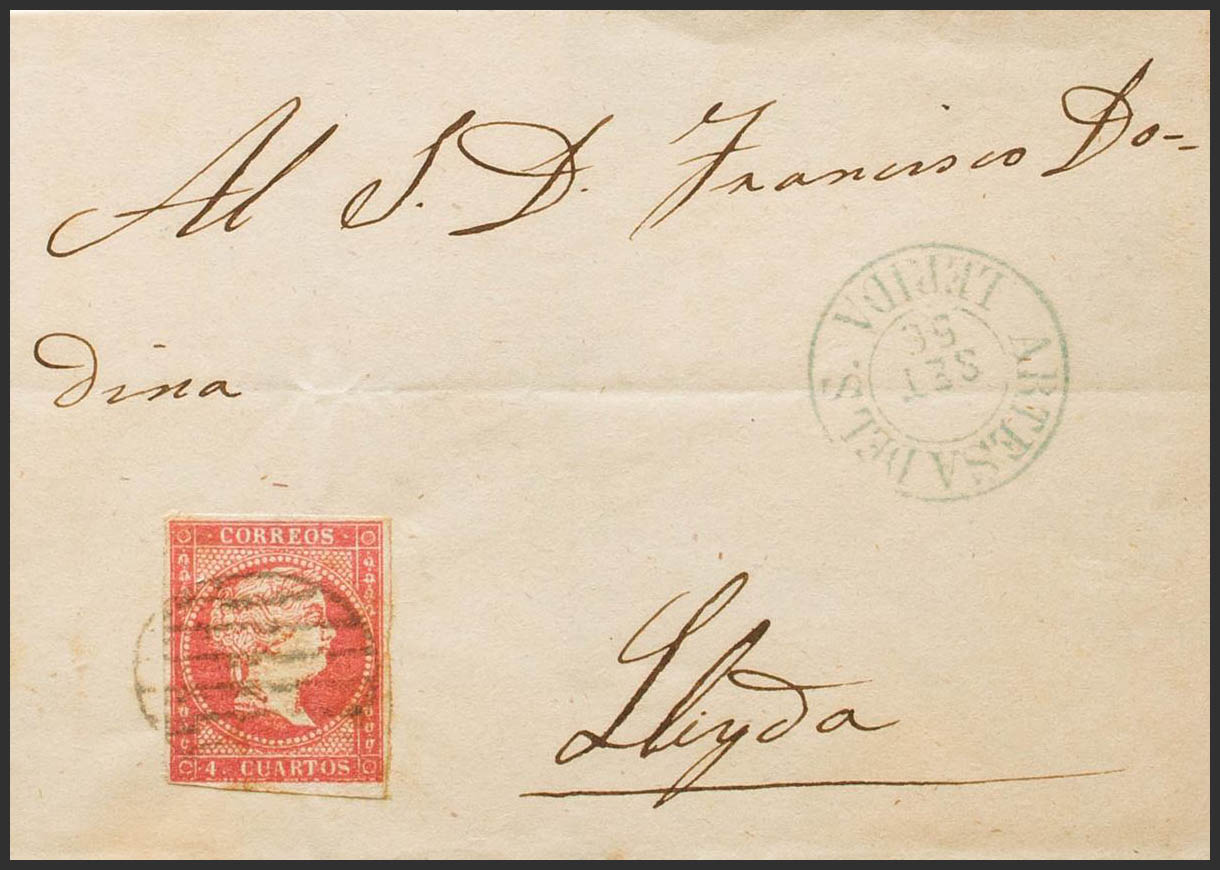 Al S. D. Francisco Do-
dina
ARTESA DE L S.
LERIDA
SET
CORREOS
4. CUARTOS
Lleyda